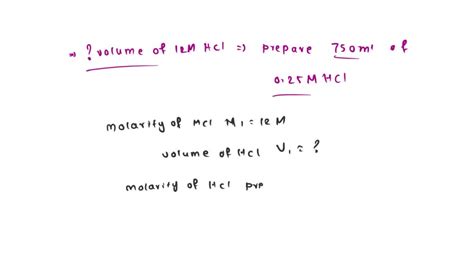 ⇒ ? volume of 12M HCl ⇒ prepare 750ml of
0.25M HCl
molarity of HCl M₁ = 12M
volume of HCl V₁ = ?
molarity of HCl pre